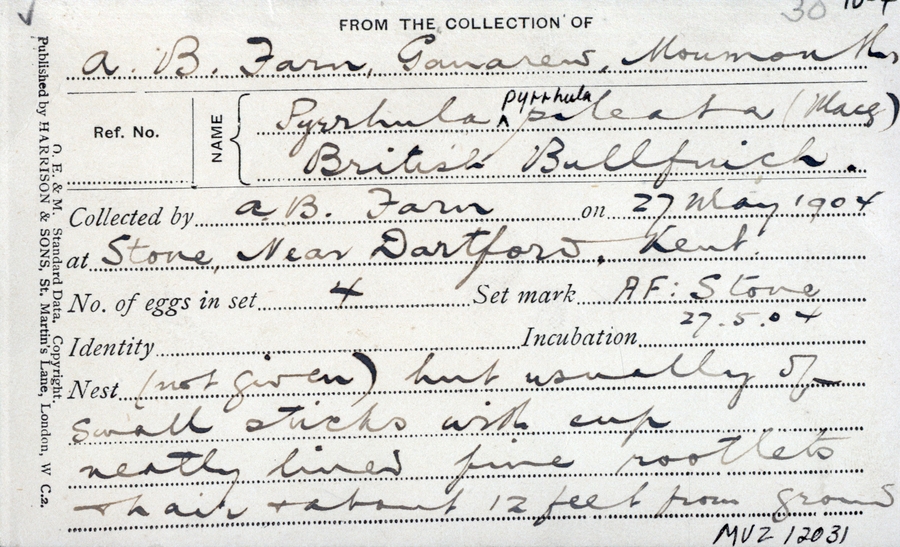 30 10-4
FROM THE COLLECTION OF
A. B. Farn, Ganarew, Moumonths
Ref. No.
NAME
pyrrhula
Pyrrhula ^ pileata (Macg)
British Bullfinch.
Collected by A. B. Farn on 27 May 1904
at Stone, Near Dartford, Kent.
No. of eggs in set 4 Set mark AF: Stone
27.5.04
Identity Incubation
Nest (not given) but usually of
small sticks with cup
neatly lined fine rootlets
+ hair + about 12 feet from ground
MVZ 12031
O. E. & M. Standard Data. Copyright.
Published by HARRISON & SONS, St. Martin's Lane, London, W C.2.